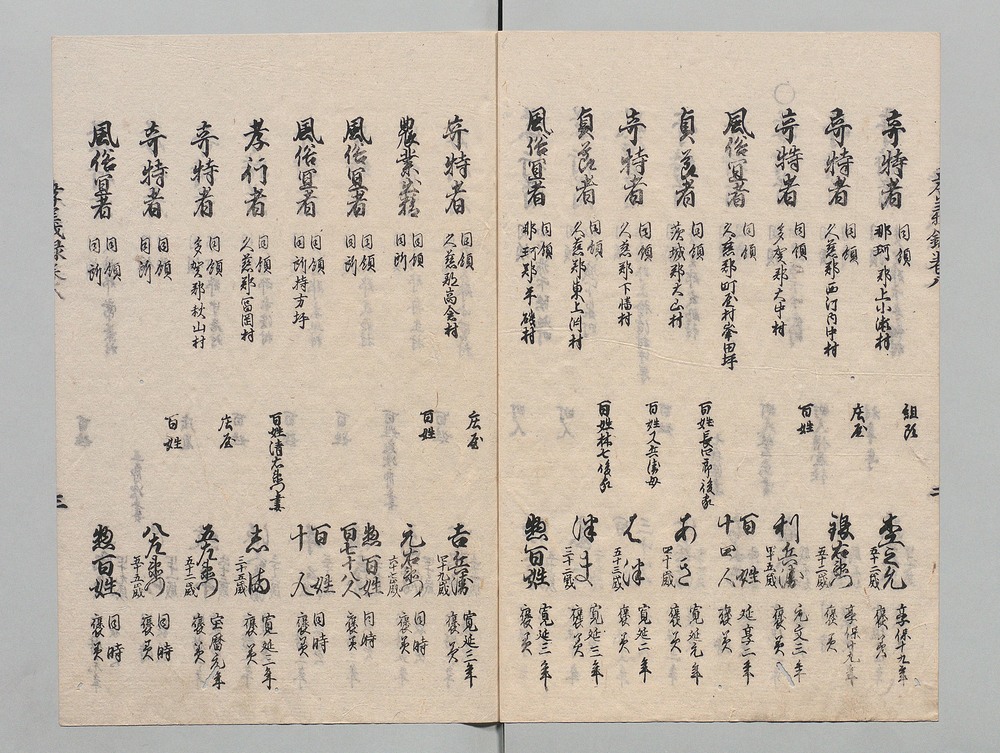 奇特者
同領
那珂郡上小瀬村
組頭
五十二歳
享保十九年
褒美
奇特者
同領
久慈郡西河内中村
庄屋
五十二歳
褒美
奇特者
同領
多賀郡大中村
百姓
利兵衛
四十五歳
元文三年
褒美
風俗宜者
同領
久慈郡町屋村峯田坪
百姓
十四人
延享三年
褒美
貞節者
同領
茨城郡大山村
百姓長四郎後家
あき
四十歳
寛延元年
褒美
奇特者
同領
久慈郡下幡村
百姓又兵衛母
五十二歳
寛延二年
褒美
貞節者
同領
久慈郡東上渕村
百姓林七後家
津ま
三十二歳
寛延二年
褒美
風俗宜者
同領
那珂郡平磯村
惣百姓
寛延三年
褒美
孝義録巻六
二
奇特者
同領
久慈郡高倉村
庄屋
吉兵衛
四十九歳
寛延三年
褒美
農業出精
同領
同所
百姓
元右衛門
六十六歳
同時
褒美
風俗宜者
同領
同所
惣百姓
百七十八人
同時
褒美
風俗宜者
同領
同所持方坪
百姓
十人
同時
褒美
孝行者
同領
久慈郡冨岡村
百姓清右衛門妻
志め
二十五歳
寛延三年
褒美
奇特者
同領
多賀郡秋山村
庄屋
五左衛門
五十二歳
宝暦元年
褒美
奇特者
同領
同所
百姓
八左衛門
五十五歳
同時
褒美
風俗宜者
同領
同所
惣百姓
同時
褒美
孝義録巻六
三